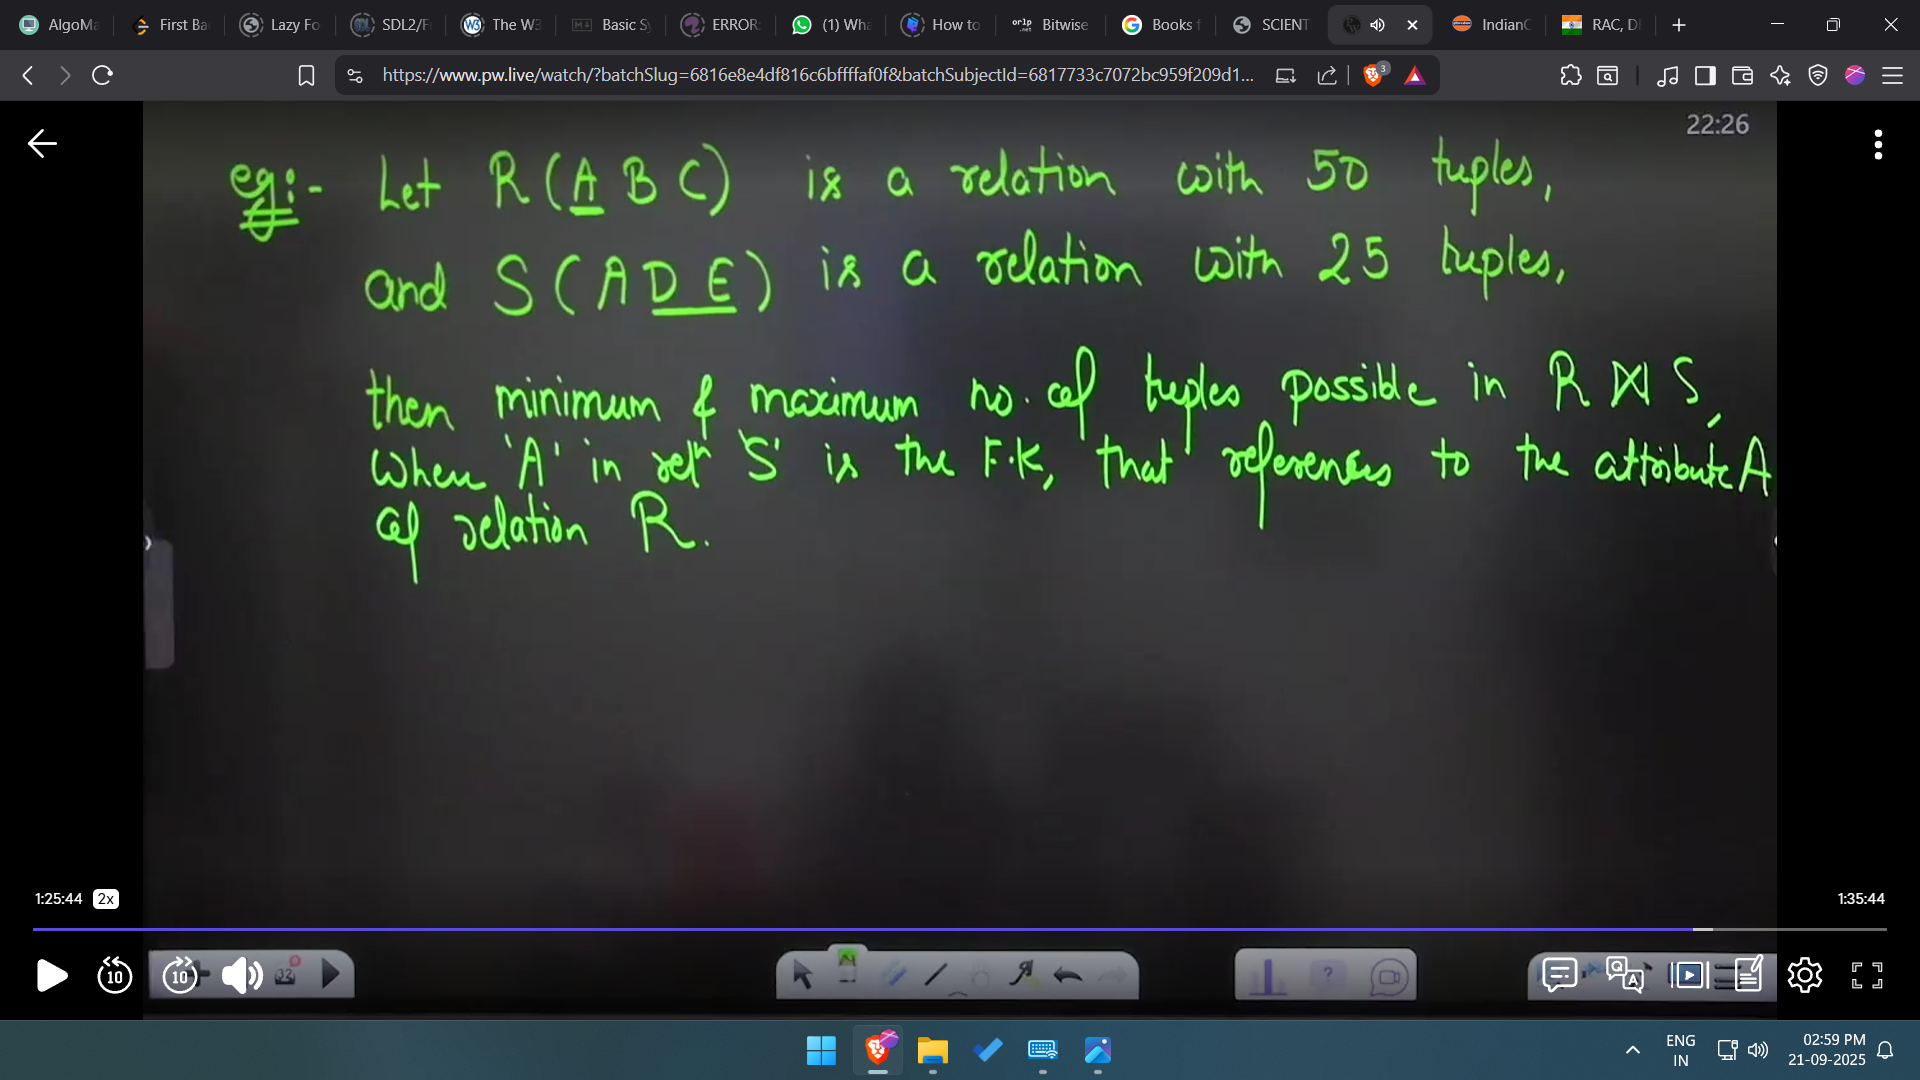 AlgoMa
First Ba
Lazy Fo
SDL2/F
The W3
Basic S
ERROR:
(1) Wha
How to
Bitwise
Books f
SCIENT
IndianC
RAC, D
https://www.pw.live/watch/?batchSlug=6816e8e4df816c6bffffaf0f&batchSubjectId=6817733c7072bc959f209d1...
3
22:26
eg:- Let R(A B C) is a relation with 50 tuples,
and S(A D E) is a relation with 25 tuples,
then minimum & maximum no. of tuples possible in R ⋈ S,
when 'A' in relⁿ 'S' is the F.K, that references to the attribute A
of relation R.
1:25:44 2x
1:35:44
10
10
32
ENG
IN
02:59 PM
21-09-2025